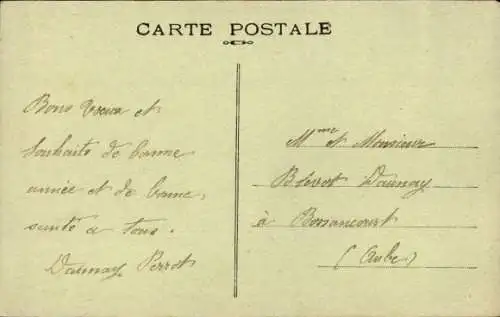 CARTE POSTALE
Bons vœux et
souhaits de bonne
année et de bonne
santé a tous.
Daunay Perrot
Mme et Monsieur
Daunay
à Bossancourt
(Aube)